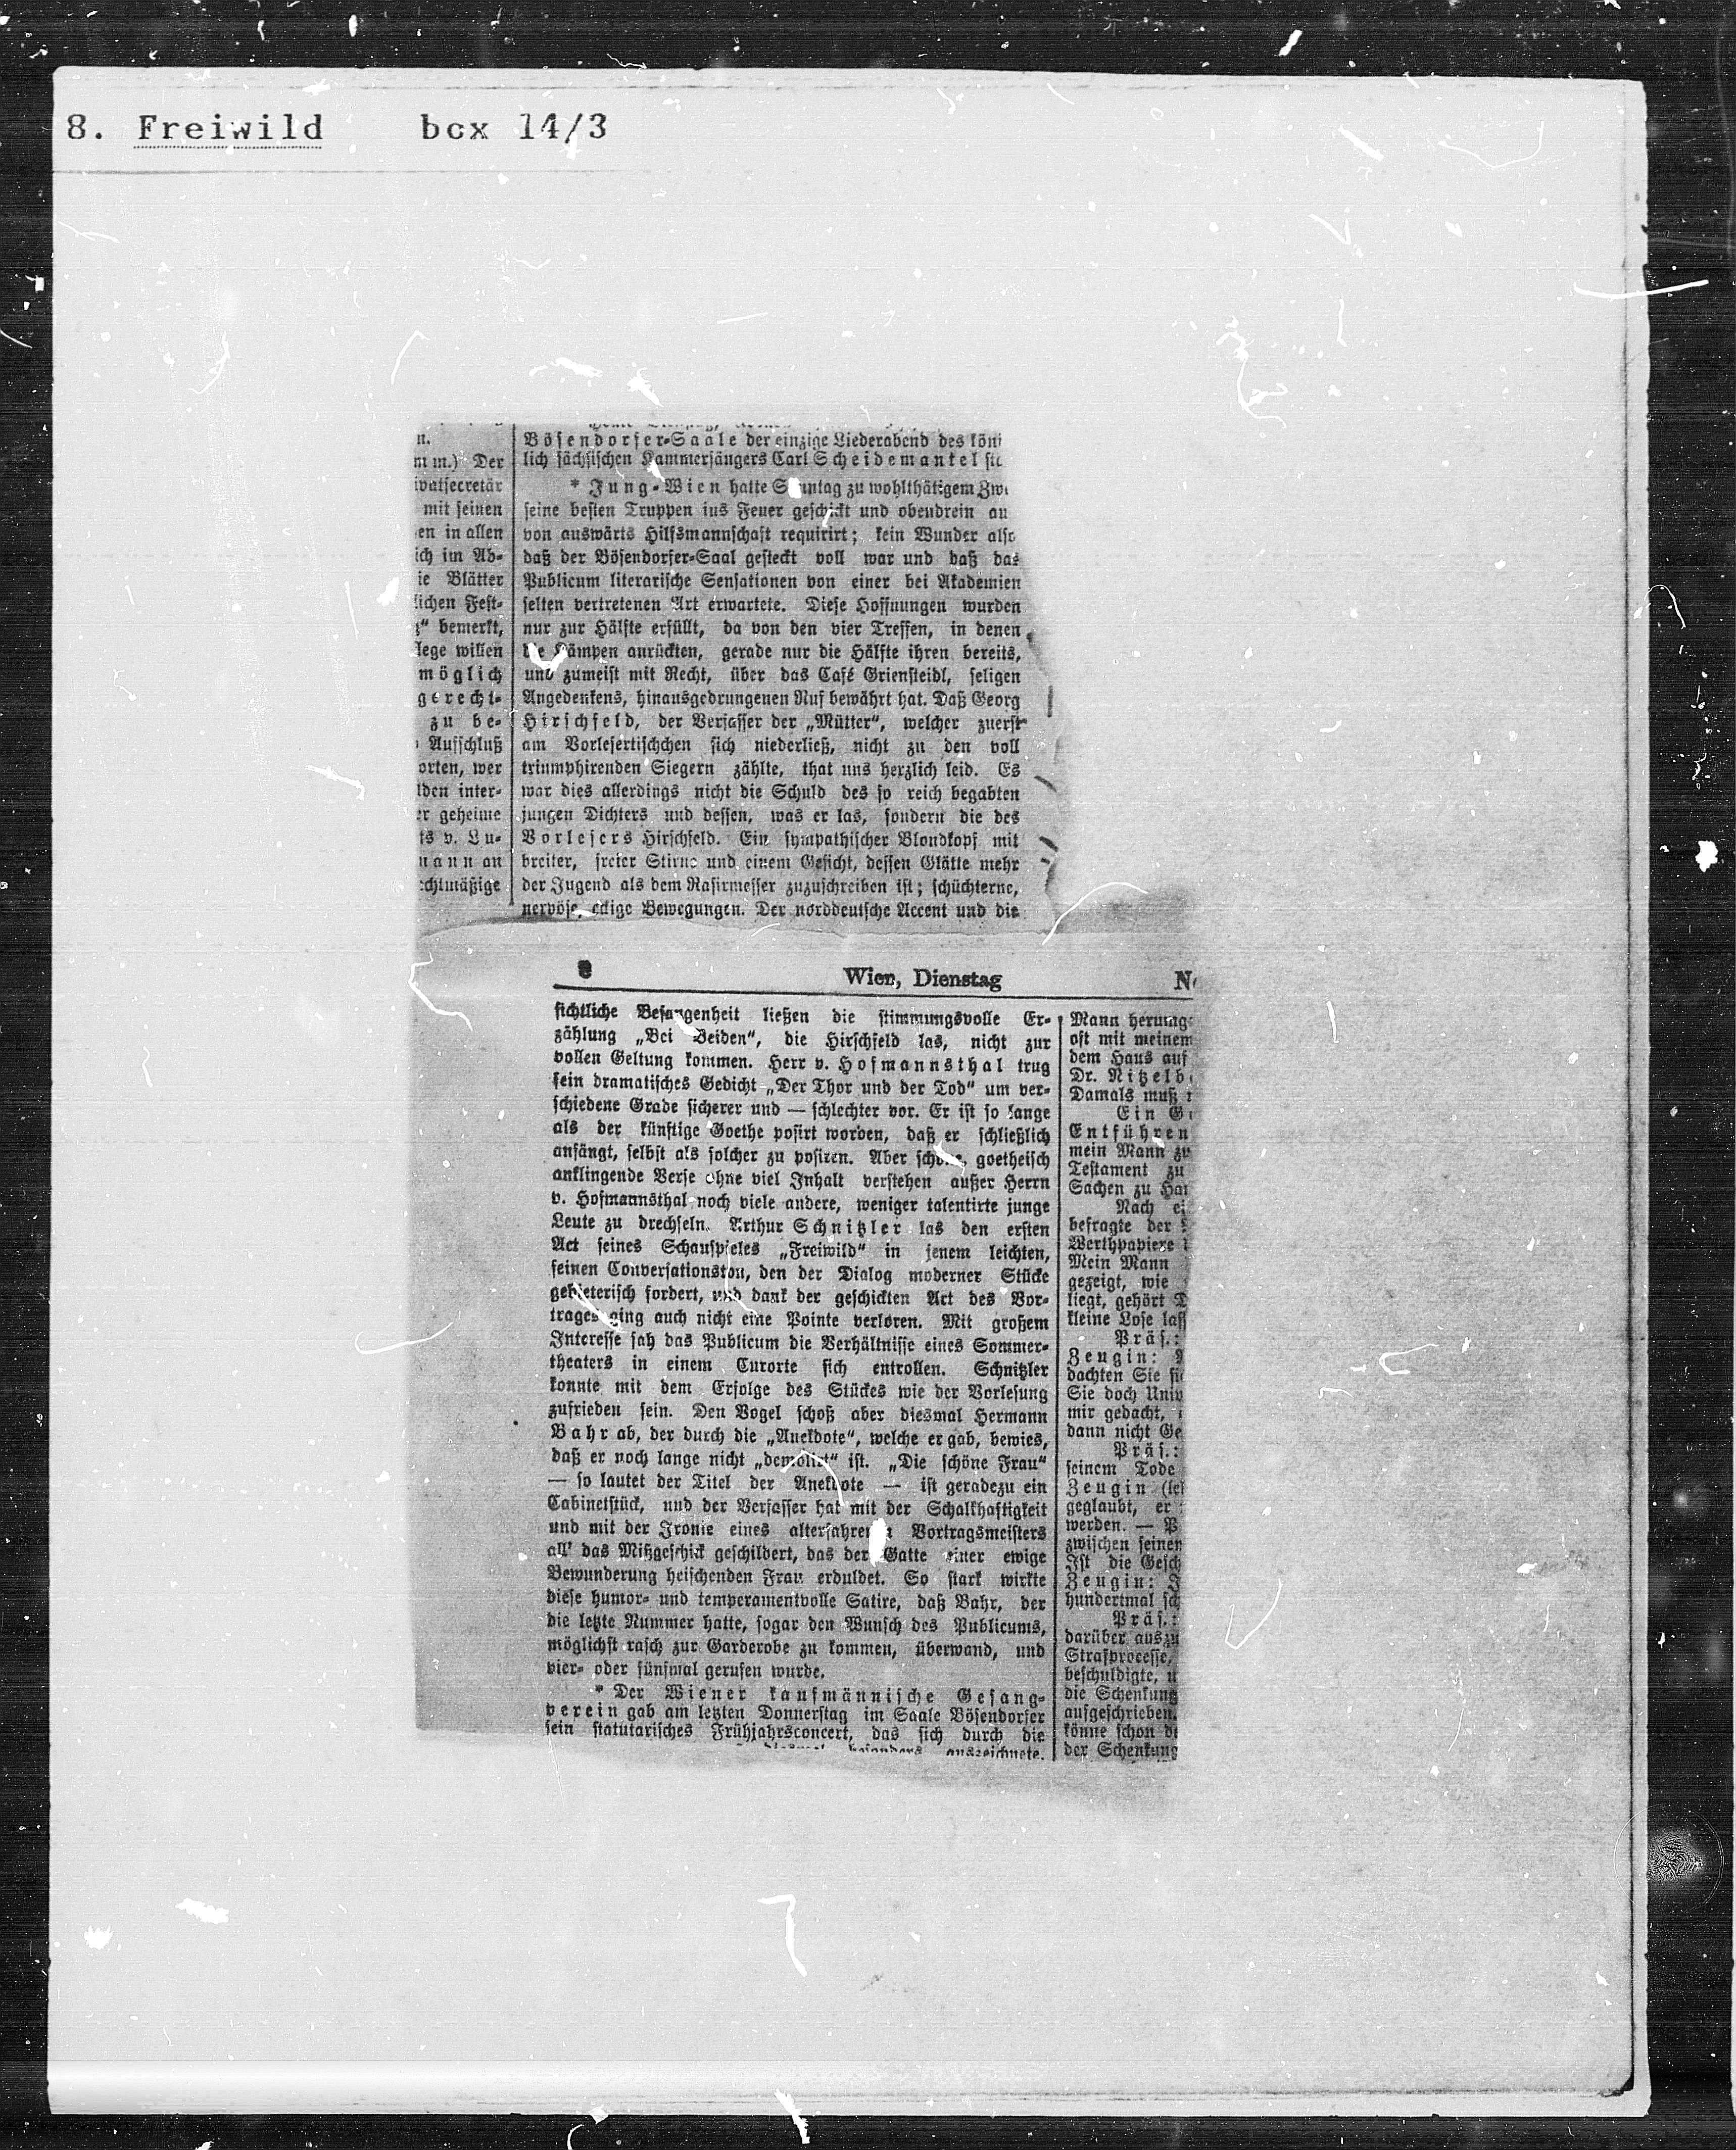 8. Freiwild box 14/3
n.
m m.) Der
ivatsecretär
mit seinen
en in allen
ich im Ab-
ie Blätter
lichen Fest-
bemerkt,
lege willen
möglich
gerecht-
zu be-
Aufschluß
orten, wer
lden inter-
er geheime
ts v. Lu-
mann an
echtmäßige
Bösendorfer-Saale der einzige Liederabend des köni
lich sächsischen Kammersängers Carl Scheidemantel
* Jung-Wien hatte Sonntag zu wohlthätigem Zwe
seine besten Truppen ins Feuer geschickt und obendrein au
von auswärts Hilfsmannschaft requirirt; kein Wunder also
daß der Bösendorfer-Saal gesteckt voll war und daß das
Publicum literarische Sensationen von einer bei Akademien
selten vertretenen Art erwartete. Diese Hoffnungen wurden
nur zur Hälfte erfüllt, da von den vier Treffen, in denen
die Kämpen anrückten, gerade nur die Hälfte ihren bereits,
und zumeist mit Recht, über das Café Griensteidl, seligen
Angedenkens, hinausgedrungenen Ruf bewährt hat. Daß Georg
Hirschfeld, der Verfasser der „Mütter“, welcher zuerst
am Vorlesertischchen sich niederließ, nicht zu den voll
triumphirenden Siegern zählte, that uns herzlich leid. Es
war dies allerdings nicht die Schuld des so reich begabten
jungen Dichters und dessen, was er las, sondern die des
Vorlesers Hirschfeld. Ein sympathischer Blondkopf mit
breiter, freier Stirne und einem Gesicht, dessen Glätte mehr
der Jugend als dem Rasirmesser zuzuschreiben ist; schüchterne,
nervöse, eckige Bewegungen. Der norddeutsche Accent und die
Wien, Dienstag
sichtliche Befangenheit ließen die stimmungsvolle Er-
zählung „Bei Beiden“, die Hirschfeld las, nicht zur
vollen Geltung kommen. Herr v. Hofmannsthal trug
sein dramatisches Gedicht „Der Thor und der Tod“ um ver-
schiedene Grade sicherer und — schlechter vor. Er ist so lange
als der künftige Goethe posirt worden, daß er schließlich
anfängt, selbst als solcher zu posiren. Aber schöne, goetheisch
anklingende Verse ohne viel Inhalt verstehen außer Herrn
v. Hofmannsthal noch viele andere, weniger talentirte junge
Leute zu drechseln. Arthur Schnitzler las den ersten
Act seines Schauspieles „Freiwild“ in jenem leichten,
feinen Conversationston, den der Dialog moderner Stücke
gebieterisch fordert, und dank der geschickten Art des Vor-
trages ging auch nicht eine Pointe verloren. Mit großem
Interesse sah das Publicum die Verhältnisse eines Sommer-
theaters in einem Curorte sich entrollen. Schnitzler
konnte mit dem Erfolge des Stückes wie der Vorlesung
zufrieden sein. Den Vogel schoß aber diesmal Hermann
Bahr ab, der durch die „Anekdote“, welche er gab, bewies,
daß er noch lange nicht „demolirt“ ist. „Die schöne Frau“
— so lautet der Titel der Anekdote — ist geradezu ein
Cabinetstück, und der Verfasser hat mit der Schalkhaftigkeit
und mit der Ironie eines alterfahrenen Vortragsmeisters
all' das Mißgeschick geschildert, das der Gatte einer ewige
Bewunderung heischenden Frau erduldet. So stark wirkte
diese humor- und temperamentvolle Satire, daß Bahr, der
die letzte Nummer hatte, sogar den Wunsch des Publicums,
möglichst rasch zur Garderobe zu kommen, überwand, und
vier- oder fünfmal gerufen wurde.
* Der Wiener kaufmännische Gesang-
verein gab am letzten Donnerstag im Saale Bösendorfer
sein statutarisches Frühjahrsconcert, das sich durch die
besonders auszeichnete.
Mann herumg
oft mit meinem
dem Haus auf
Dr. Nitzelb
Damals muß
Ein G
Entführen
mein Mann zu
Testament zu
Sachen zu Han
Nach ei
befragte der
Werthpapiere
Mein Mann
gezeigt, wie
liegt, gehört D
kleine Lose lass
Präs.:
Zeugin:
dachten Sie si
Sie doch Univ
mir gedacht,
dann nicht Ge
Präs.:
seinem Tode
Zeugin (le
geglaubt, er
werden. — P
zwischen seinen
Ist die Gesch
Zeugin: J
hundertmal sch
Präs.:
darüber auszu
Strafprocesse,
beschuldigte, u
die Schenkung
aufgeschrieben.
könne schon de
der Schenkung